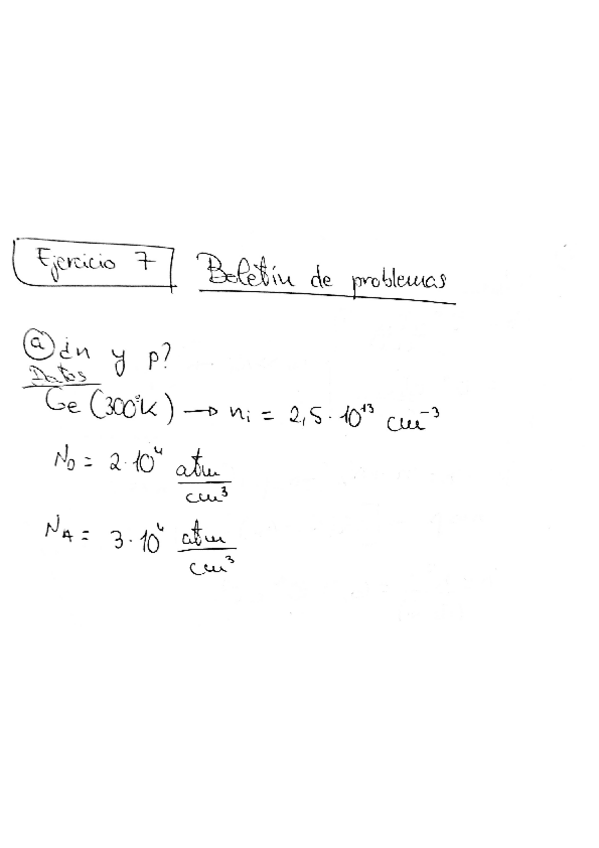 Ejercicio 7 Boletín de problemas
a ¿n y p?
Datos
Ge (300°K) → ni = 2,5·10¹³ cm⁻³
N_D = 2·10⁴ atm/cm³
N_A = 3·10⁴ atm/cm³